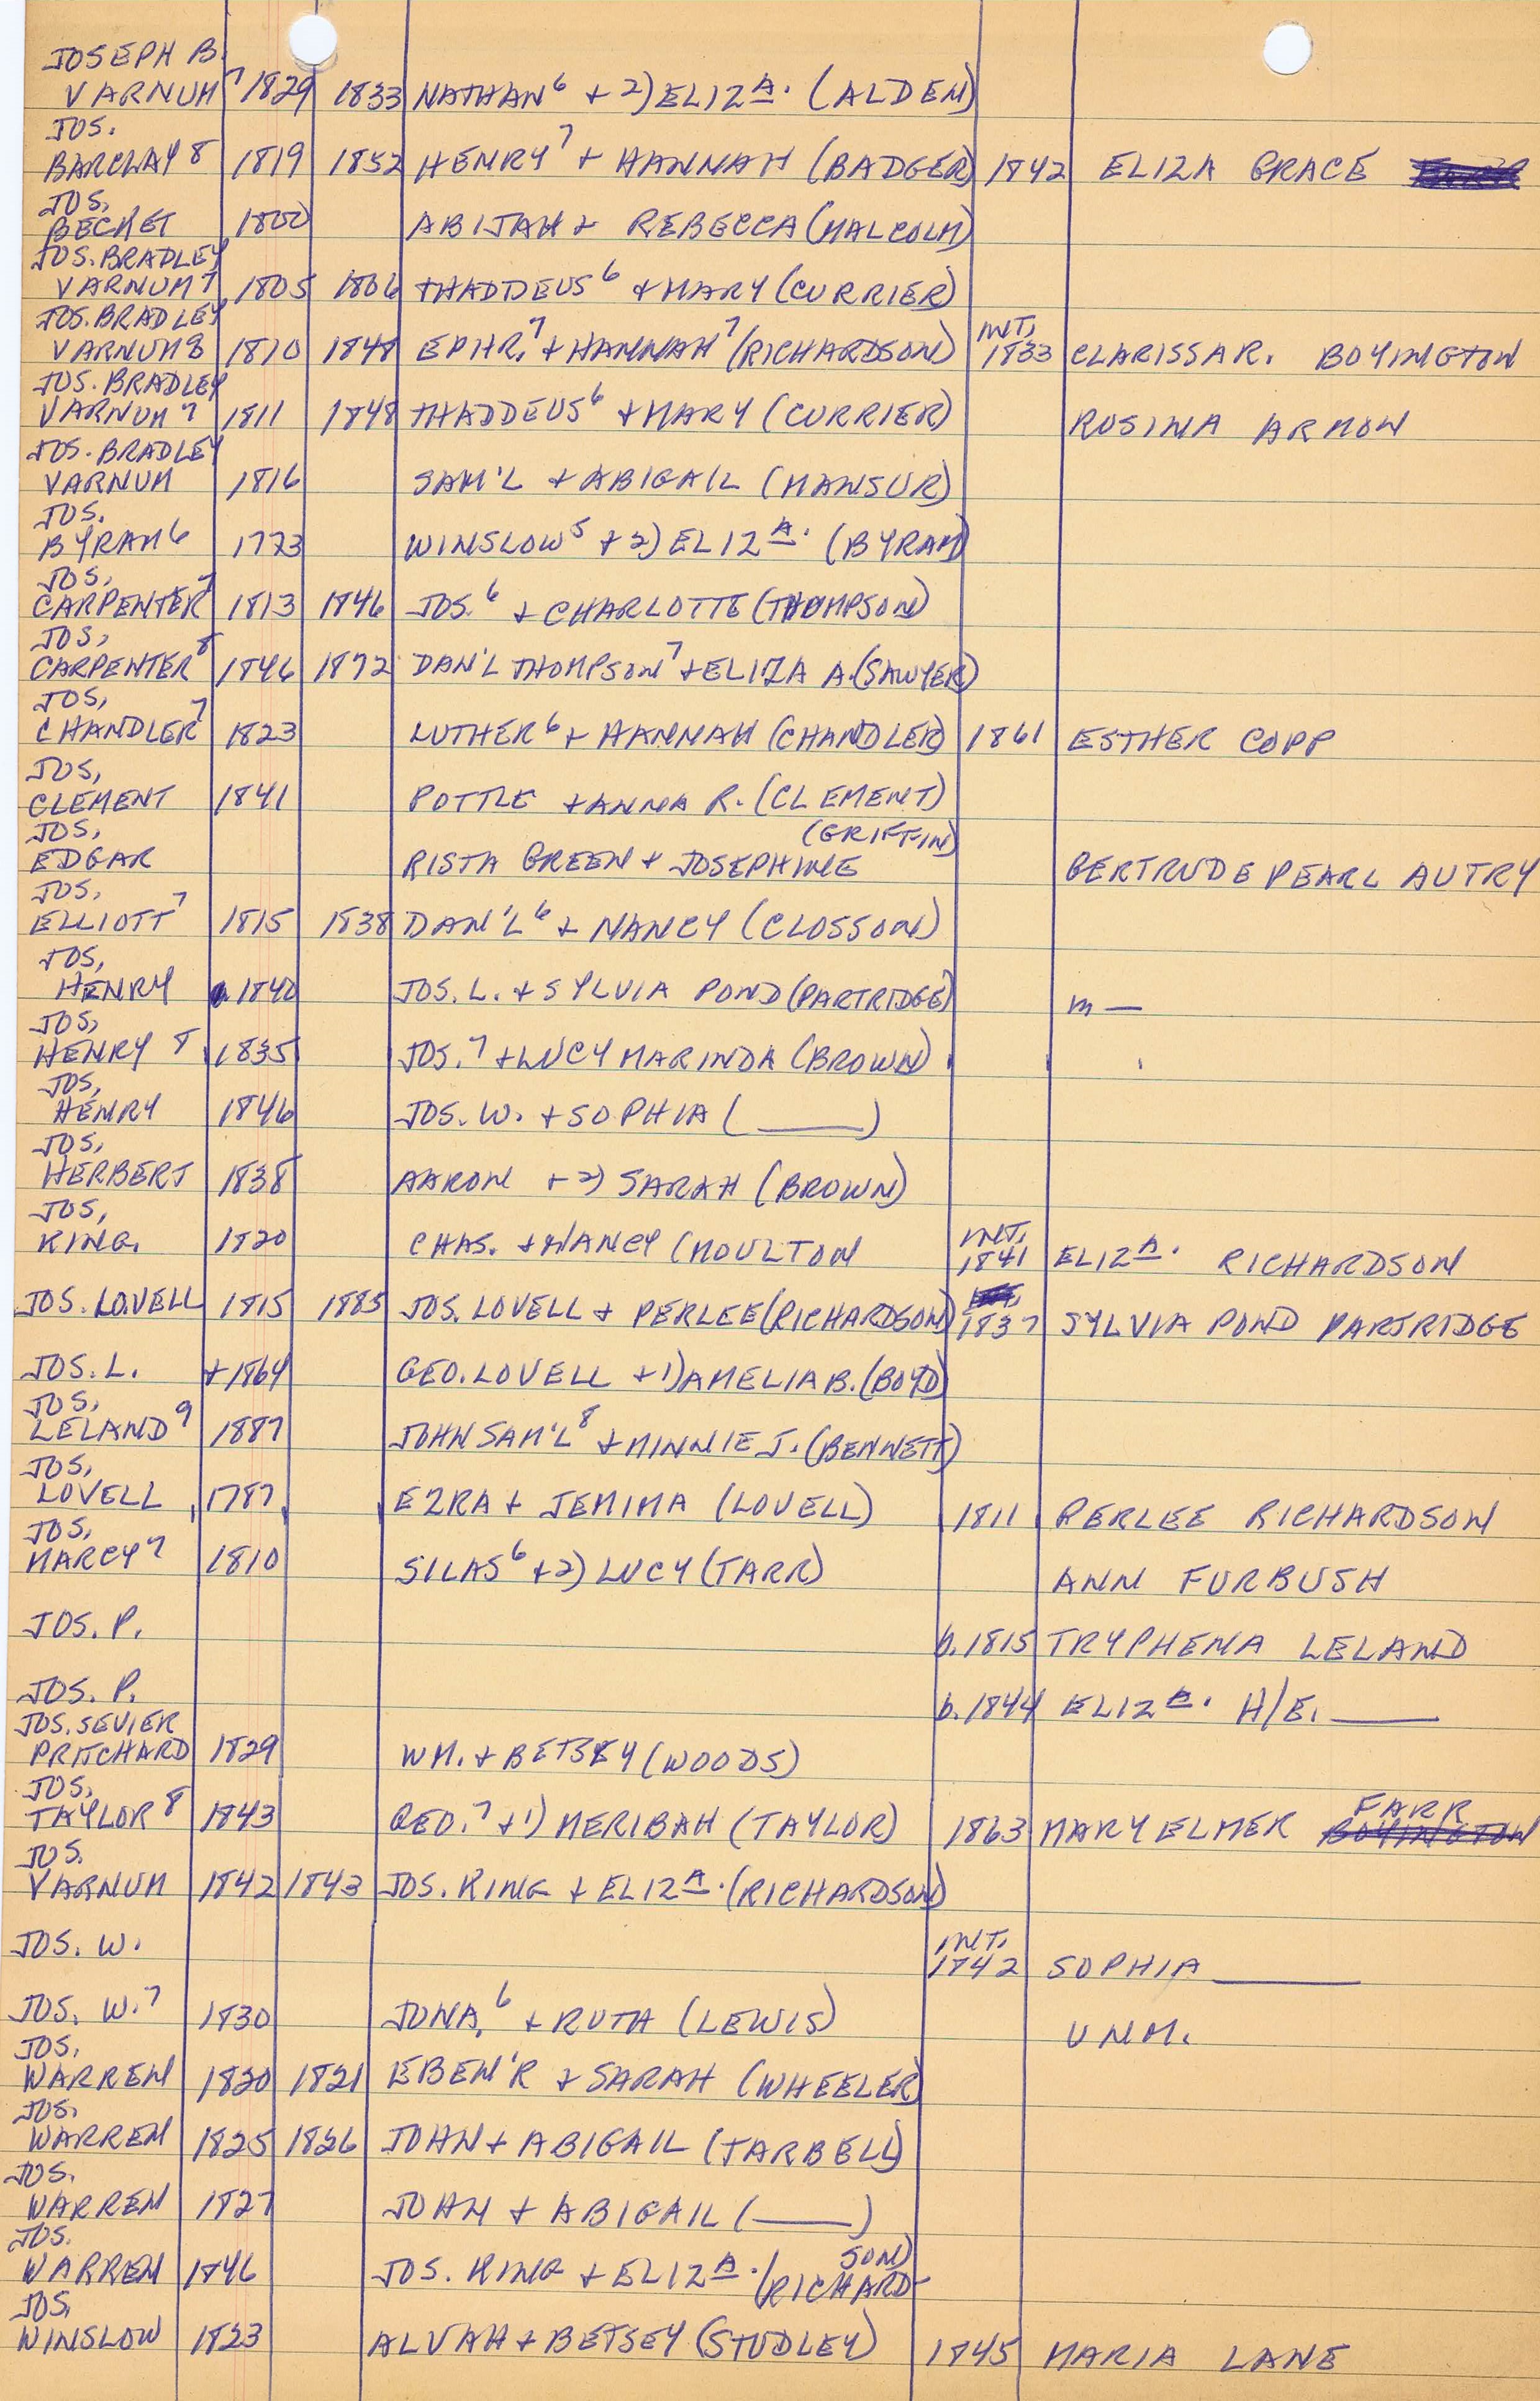 JOSEPH B.
VARNUM 7 1829 1833 NATHAN 6 + 2) ELIZ A. (ALDEN)
JOS.
BARCLAY 8 1819 1852 HENRY 7 + HANNAH (BADGER) 1842 ELIZA GRACE
JOS.
BECKET 1800 ABIJAH + REBECCA (MALCOLM)
JOS. BRADLEY
VARNUM 7 1805 1806 THADDEUS 6 + MARY (CURRIER)
JOS. BRADLEY INT.
VARNUM 8 1810 1848 EPHR. 7 + HANNAH 7 (RICHARDSON) 1833 CLARISSA R. BOYINGTON
JOS. BRADLEY
VARNUM 7 1811 1848 THADDEUS 6 + MARY (CURRIER) ROSINA ARMOW
JOS. BRADLEY
VARNUM 1816 SAM'L + ABIGAIL (MANSUR)
JOS.
BYRAM 6 1773 WINSLOW 5 + 2) ELIZ A. (BYRAM)
JOS.
CARPENTER 7 1813 1846 JOS. 6 + CHARLOTTE (THOMPSON)
JOS.
CARPENTER 8 1846 1872 DAN'L THOMPSON 7 + ELIZA A. (SAWYER)
JOS.
CHANDLER 7 1823 LUTHER 6 + HANNAH (CHANDLER) 1861 ESTHER COPP
JOS.
CLEMENT 1841 POTTLE + ANNA R. (CLEMENT)
JOS. (GRIFFIN)
EDGAR RISTA GREEN + JOSEPHINE GERTRUDE PEARL AUTRY
JOS.
ELLIOTT 7 1815 1838 DAN'L 6 + NANCY (CLOSSON)
JOS.
HENRY 1840 JOS. L. + SYLVIA POND (PARTRIDGE) m —
JOS.
HENRY 8 1835 JOS. 7 + LUCY MARINDA (BROWN)
JOS.
HENRY 1846 JOS. W. + SOPHIA (____)
JOS.
HERBERT 1838 AARON + 2) SARAH (BROWN)
JOS. INT.
KING. 1820 CHAS. + NANCY (MOULTON 1841 ELIZ A. RICHARDSON
JOS. LOVELL 1815 1885 JOS. LOVELL + PERLEE (RICHARDSON) 1837 SYLVIA POND PARTRIDGE
JOS. L. + 1864 GEO. LOVELL + 1) AMELIA B. (BOYD)
JOS.
LELAND 9 1887 JOHN SAM'L 8 + MINNIE J. (BENNETT)
JOS.
LOVELL 1787 EZRA + JEMIMA (LOVELL) 1811 PERLEE RICHARDSON
JOS.
MARCY 7 1810 SILAS 6 + 2) LUCY (TARR) ANN FURBUSH
JOS. P. b. 1815 TRYPHENA LELAND
JOS. P. b. 1844 ELIZ A. H/E. ____
JOS. SEVIER
PRITCHARD 1829 WM. + BETSEY (WOODS)
JOS. FARR
TAYLOR 8 1843 GEO. 7 + 1) MERIBAH (TAYLOR) 1863 MARY ELMER BOYINGTON
JOS.
VARNUM 1842 1843 JOS. KING + ELIZ A. (RICHARDSON)
INT.
JOS. W. 1842 SOPHIA ____
JOS. W. 7 1830 JONA. 6 + RUTH (LEWIS) UNM.
JOS.
WARREN 1820 1821 EBEN'R + SARAH (WHEELER)
JOS.
WARREN 1825 1826 JOHN + ABIGAIL (TARBELL)
JOS.
WARREN 1827 JOHN + ABIGAIL (____)
JOS. SON)
WARREN 1846 JOS. KING + ELIZ A. (RICHARD-
JOS.
WINSLOW 1823 ALVAH + BETSEY (STUDLEY) 1845 MARIA LANE